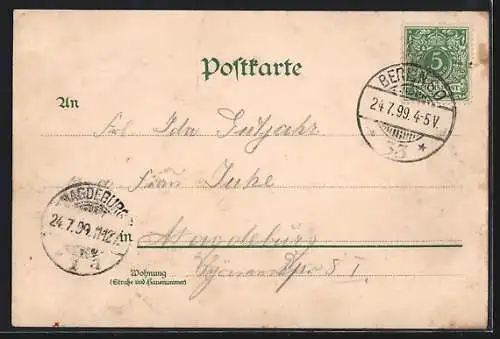 5
BERLIN SO
24.7.99. 4-5 V.
* 33 *
Postkarte
An
Frl. Ida Gutjahr
Frau
MAGDEBURG
24.7.99. 11-12
in Magdeburg
Wohnung
(Straße und Hausnummer)
I